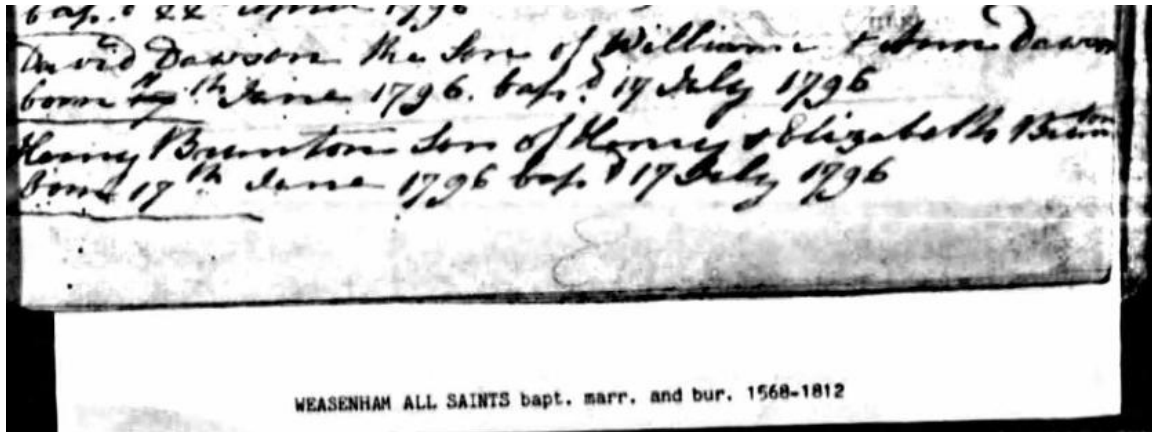 bap.d 22 April 1796
David Dawson the Son of William & Ann Dawson
born th June 1796. bap.d 17 July 1796
Henry Brunton Son of Henry & Elizabeth Brunton
born 17th June 1796 bap.d 17 July 1796
WEASENHAM ALL SAINTS bapt. marr. and bur. 1568-1812